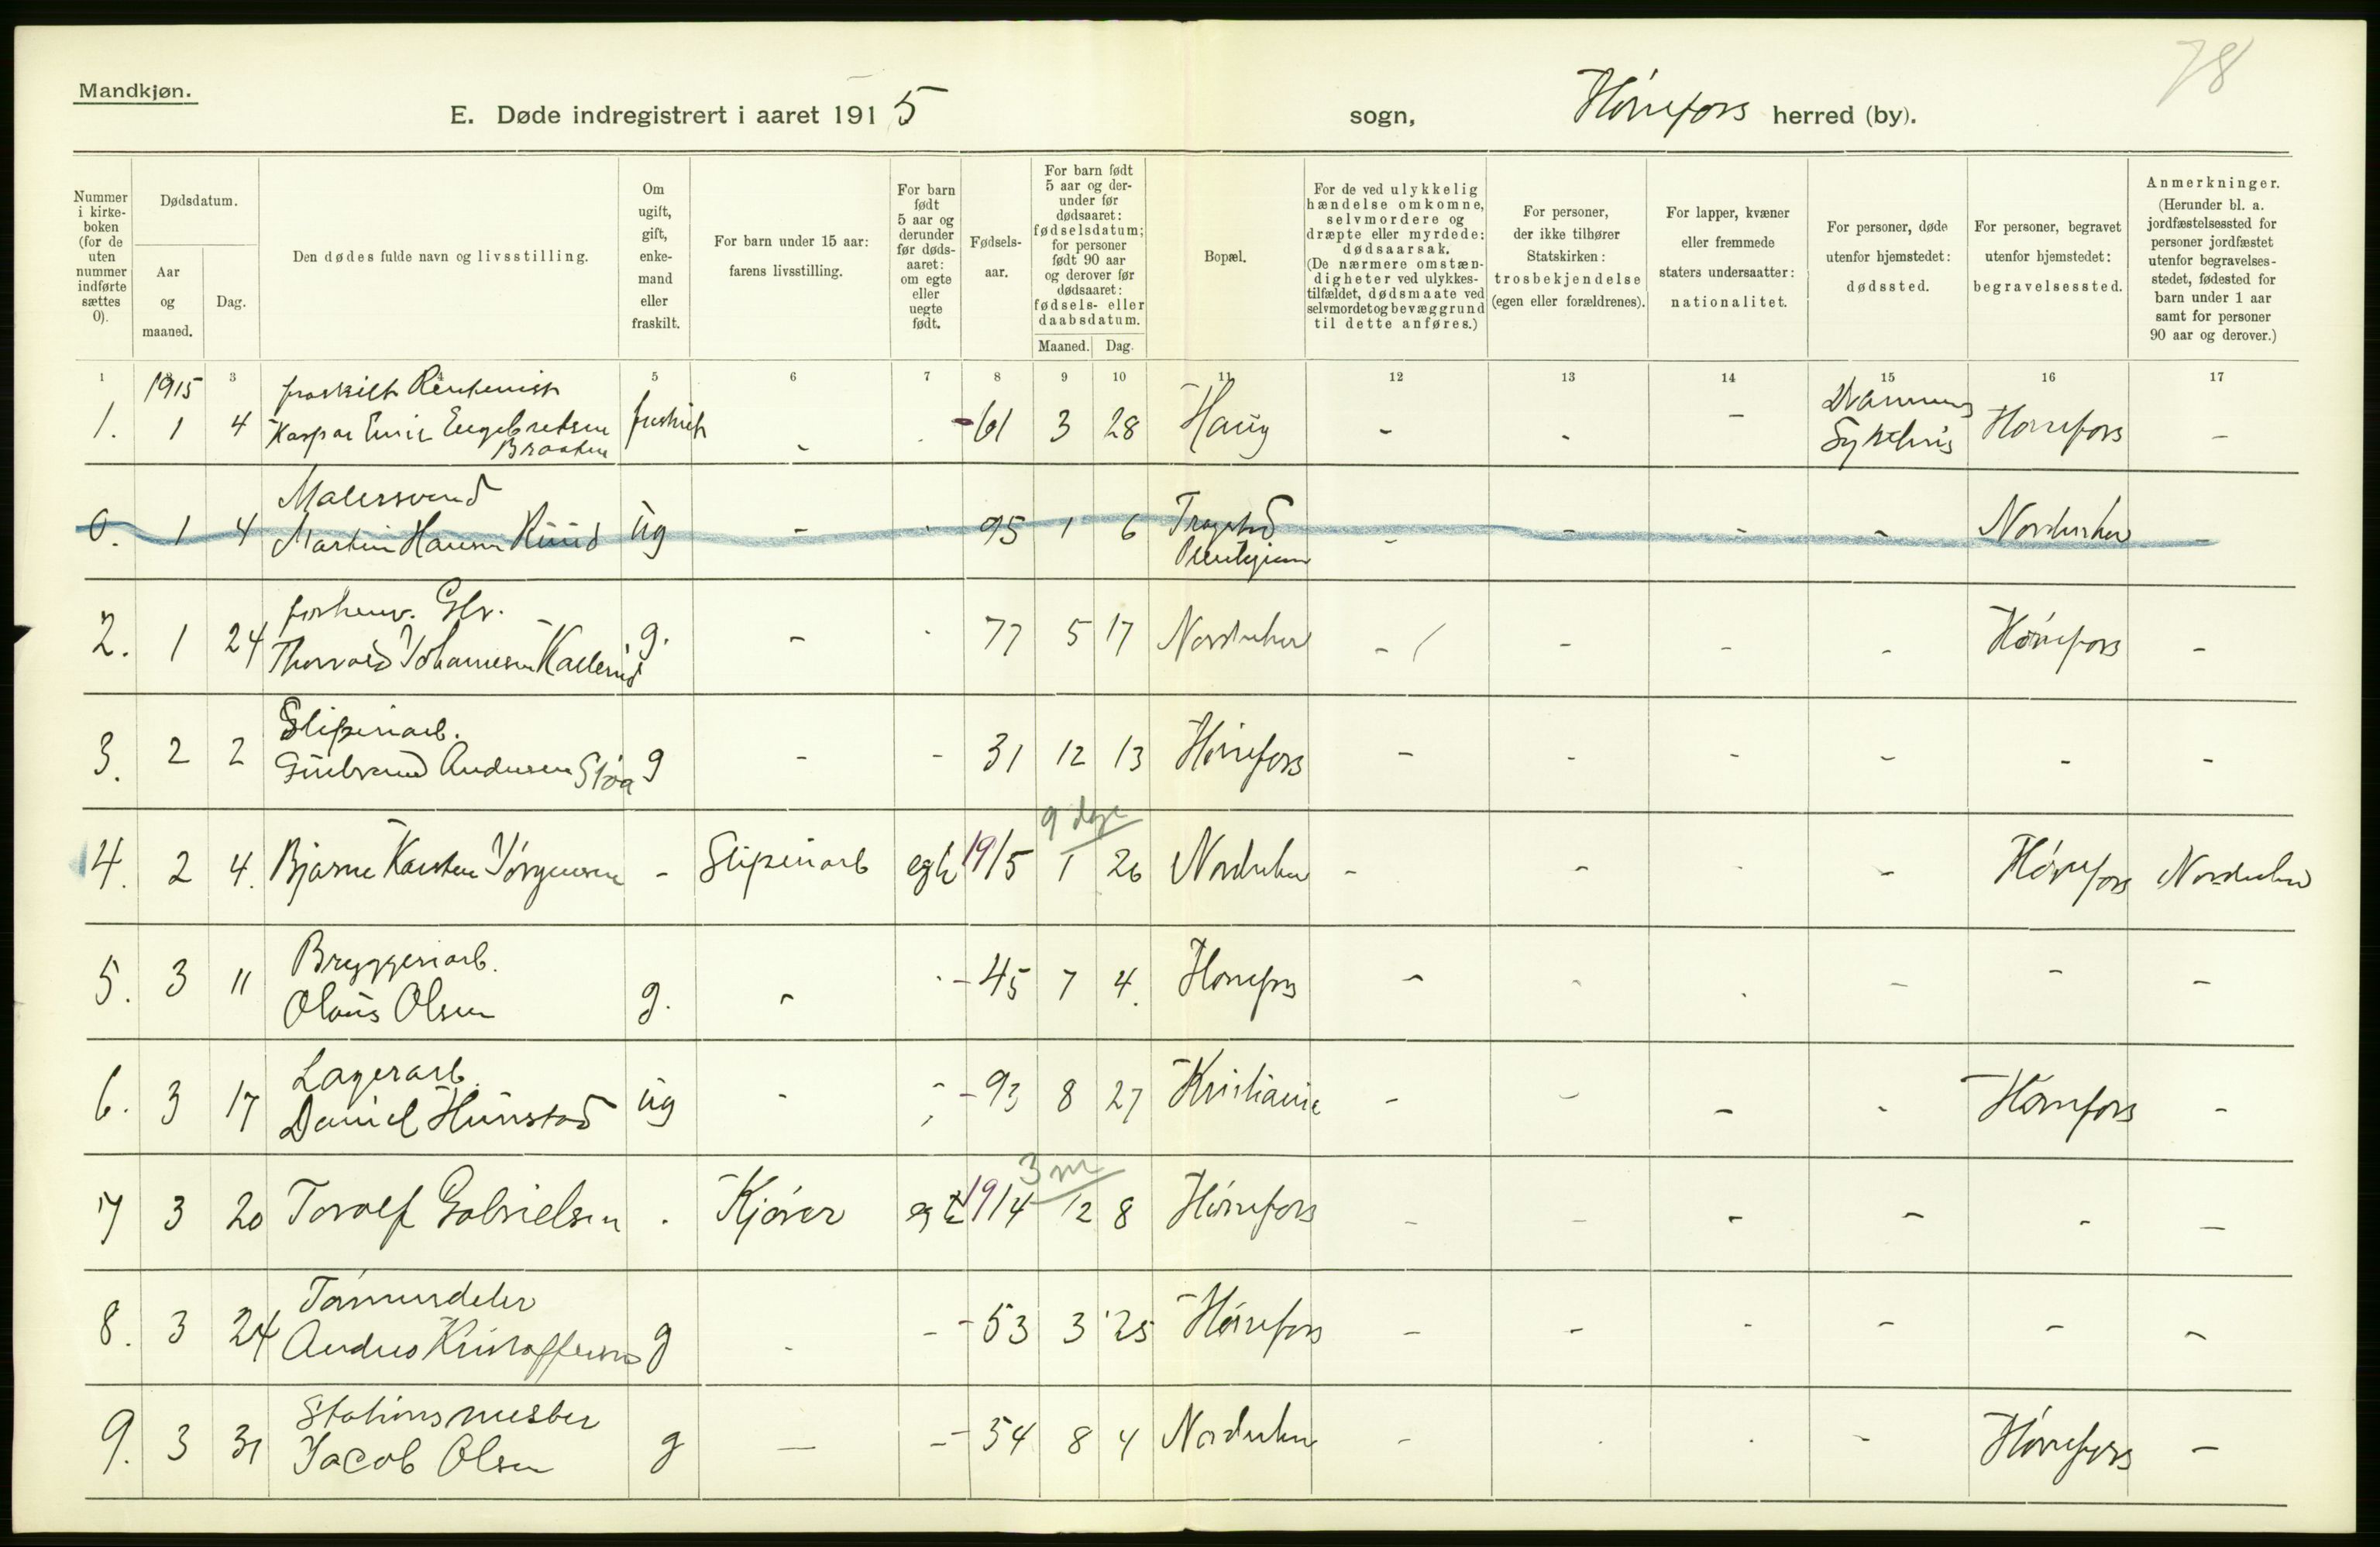 78
Mandkjøn.
E. Døde indregistrert i aaret 1915 sogn, Hønefoss herred (by).
Nummer i kirke-boken (for de uten nummer indførte sættes 0).
Dødsdatum.
Aar og maaned.
Dag.
Den dødes fulde navn og livsstilling.
Om ugift, gift, enkemand eller fraskilt.
For barn under 15 aar: farens livsstilling.
For barn født 5 aar og derunder før dødsaaret: om egte eller uegte født.
Fødsels-aar.
For barn født 5 aar og derunder før dødsaaret: fødselsdatum; for personer født 90 aar og derover før dødsaaret: fødsels- eller daabsdatum.
Maaned. Dag.
Bopæl.
For de ved ulykkelig hændelse omkomne, selvmordere og dræpte eller myrdede: dødsaarsak. (De nærmere omstændigheter ved ulykkestilfældet, dødsmaate ved selvmordet og bevæggrund til dette anføres.)
For personer, der ikke tilhører Statskirken: trosbekjendelse (egen eller forældrenes).
For lapper, kvæner eller fremmede staters undersaatter: nationalitet.
For personer, døde utenfor hjemstedet: dødssted.
For personer, begravet utenfor hjemstedet: begravelsessted.
Anmerkninger. (Herunder bl. a. jordfæstelsessted for personer jordfæstet utenfor begravelses-stedet, fødested for barn under 1 aar samt for personer 90 aar og derover.)
1 3 4 5 6 7 8 9 10 11 12 13 14 15 16 17
1915
fraskilt Rentenist
1. 1 4 Kaspar Emil Engebretsen Braaten fraskilt - - -61 3 28 Haug - - - Drammens Sykehus Hønefoss -
Malersvend
0. 1 4 Martin Hansen Ruud ug - - 95 1 6 Norderhov -
forhenv. Gbr.
2. 1 24 Thorvald Johannesen Kallerud g. - - 77 5 17 Norderhov - - - - Hønefoss -
Sliperiarb.
3. 2 2 Gulbrand Andersen Støa g - - 31 12 13 Hønefoss - - - - - -
9 dage
4. 2 4. Bjarne Karsten Jørgensen - Sliperiarb egte 1915 1 26 Norderhov - - - Hønefoss Norderhov
Bryggeriarb.
5. 3 11 Olaus Olsen g. - - 45 7 4. Hønefoss - - - - - -
Lagerarb.
6. 3 17 Daniel Hunstad ug - - 93 8 27 Kristiania - - - - Hønefoss -
3 m
7 3 20 Toralf Gabrielsen - Kjører egte 1914 12 8 Hønefoss - - - - - -
Tømmerdeler
8. 3 24 Anders Kristoffersen g - - 53 3 25 Hønefoss - - - - - -
Stationsmester
9. 3 31 Jacob Olsen g - - 54 8 4 Norderhov - - - - Hønefoss -